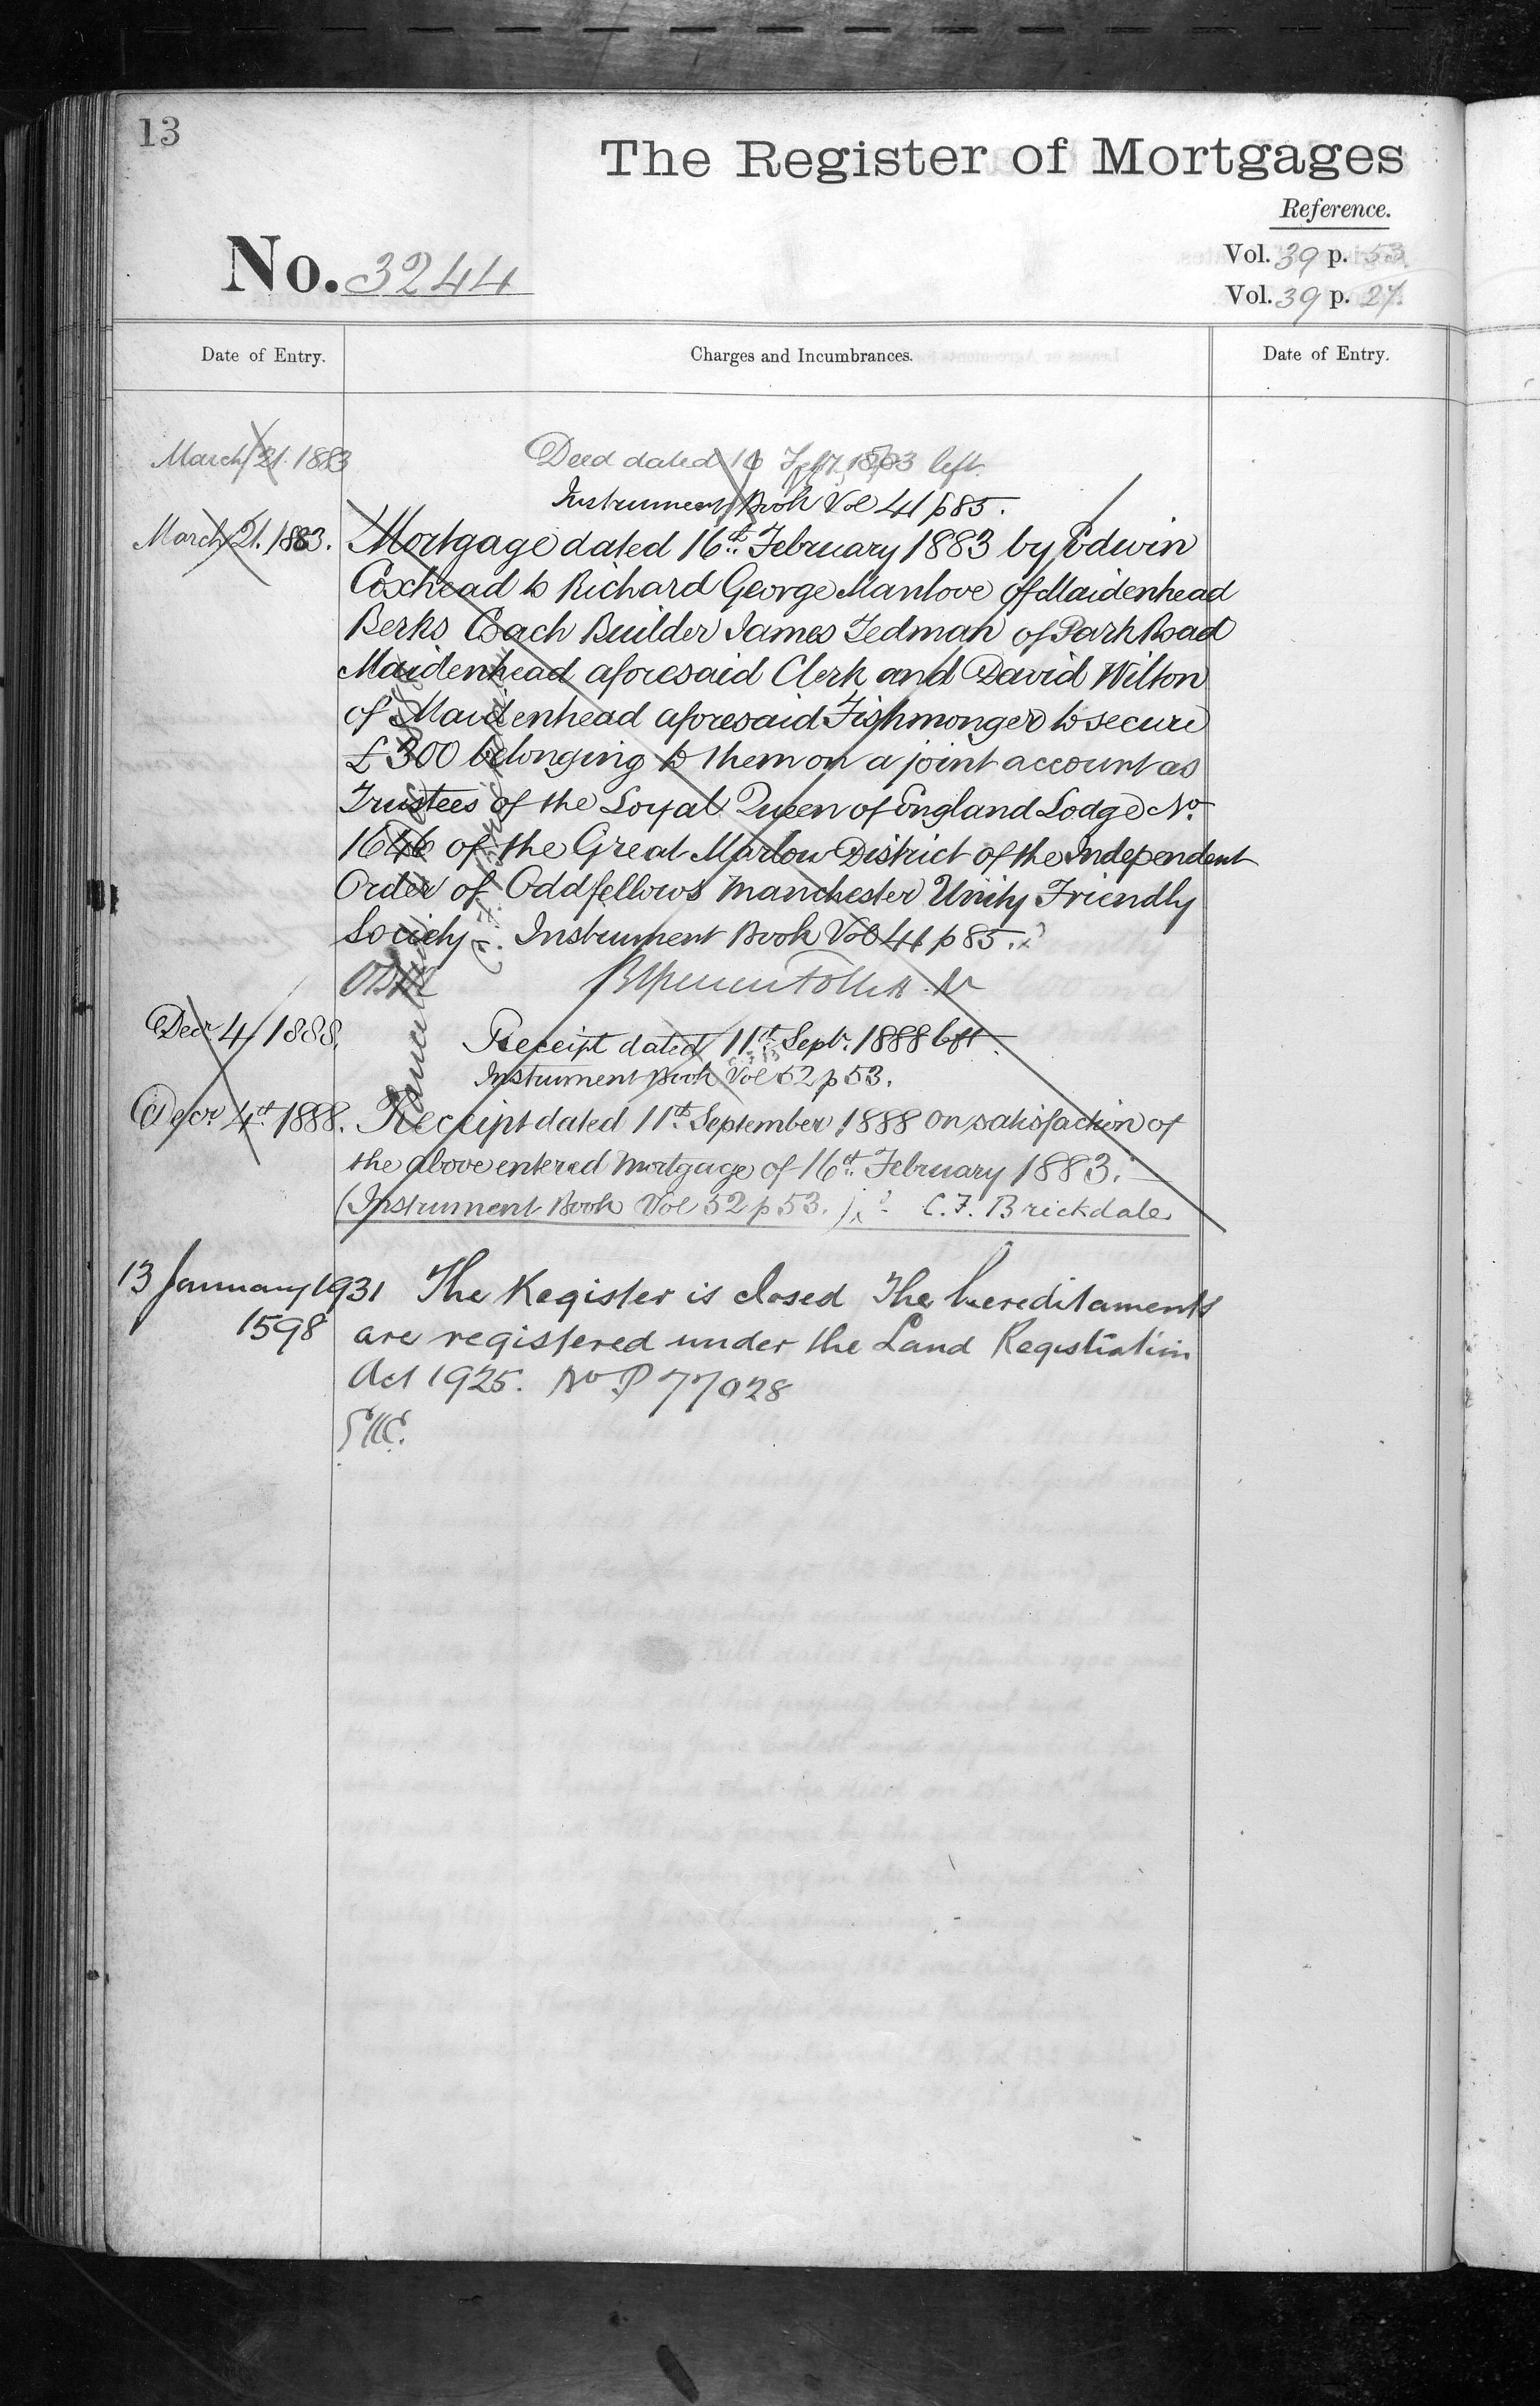 13
The Register of Mortgages
Reference.
No. 3244
Vol. 39 p. 53
Vol. 39 p. 27.
Date of Entry.
Charges and Incumbrances.
Date of Entry.
March 21. 1883
Deed dated 16 Feby. 1883 left.
Instrument Book Vol 41 p 85.
March 21. 1883.
Mortgage dated 16th February 1883 by Edwin
Coxhead to Richard George Manlove of Maidenhead
Berks Coach Builder James Tedman of Park Road
Maidenhead aforesaid Clerk and David Wilton
of Maidenhead aforesaid Fishmonger to secure
£300 belonging to them on a joint account as
Trustees of the Loyal Queen of England Lodge No
1646 of the Great Marlow District of the Independent
Order of Oddfellows Manchester Unity Friendly
Society. Instrument Book Vol 41 p 85.
Decr 4 1888.
Receipt dated 11th Sept. 1888 left
Instrument Book Vol 52 p 53.
Decr 4th 1888.
Receipt dated 11th September 1888 on satisfaction of
the above entered Mortgage of 16th February 1883.
(Instrument Book Vol 52 p 53.) C. F. Brickdale
13 January 1931
1598
The Register is closed The hereditaments
are registered under the Land Registration
Act 1925. No P 77028